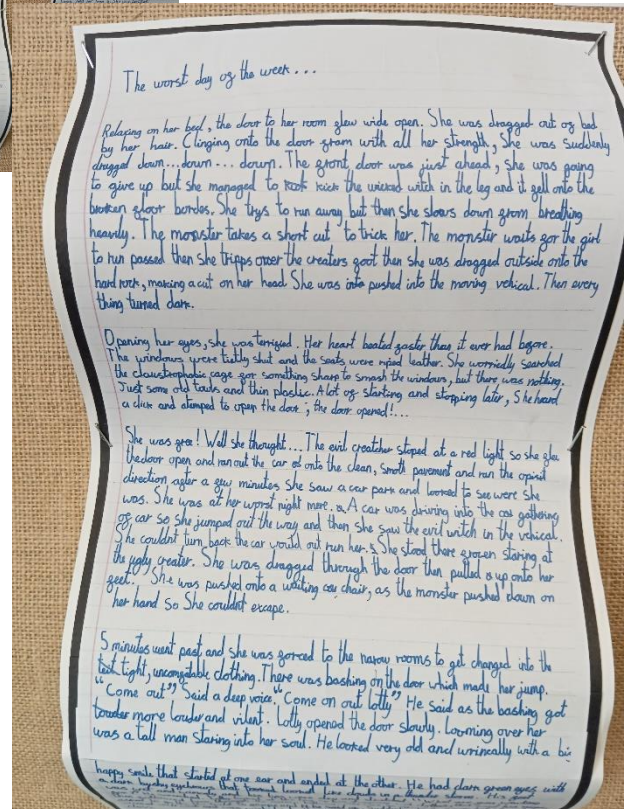 The worst day of the week...
Relaxing on her bed, the door to her room flew wide open. She was dragged out of bed
by her hair. Clinging onto the door fram with all her strength, She was suddenly
dragged down...down... down. The front door was just ahead, she was going
to give up but she managed to kick the wicked witch in the leg and it fell onto the
broken floor bordes. She trys to run away but then she slows down from breathing
heavily. The monster takes a short cut to trick her. The monster waits for the girl
to run passed then she tripps over the creaters foot then she was dragged outside onto the
hard rock, making a cut on her head She was pushed into the moving vehical. Then every
thing turned dark.
Opening her eyes, she was terrified. Her heart beated faster than it ever had before.
The windows were titly shut and the seats were riped leather. She worriedly searched
the claustrophobic cage for something sharp to smash the windows, but there was nothing.
Just some old towls and thin plastic. A lot of starting and stopping later, She heard
a click and atemped to open the door; the door opened!...
She was free! Well she thought... The evil creatcher stoped at a red light so she flew
the door open and ran out the car onto the clean, smoth pavement and ran the opisit
direction after a few minutes She saw a car park and looked to see were she
was. She was at her worst night mere. A car was driving into the gathering
of car so she jumped out the way and then she saw the evil witch in the vehical.
She couldnt turn back the car would out run her. She stood there frozen staring at
the ugly creater. She was dragged through the door then pulled up onto her
feet. She was pushed onto a waiting chair, as the monster pushed down on
her hand so She couldnt excape.
5 minutes went past and she was forced to the narow rooms to get changed into the
tight, uncomfatable clothing. There was bashing on the door which made her jump.
"Come out" Said a deep voice. "Come on out lotty" He said as the bashing got
more louder and vilent. Lotty opened the door slowly. Looming over her
was a tall man staring into her soul. He looked very old and wrincally with a big
happy smile that started at one ear and ended at the other. He had dark green eyes with